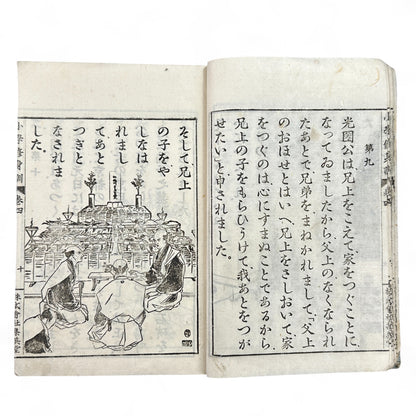 第九
光圀公は兄上をこえて家をつぐことに
なつてゐましたから父上のなくなられ
たあとで兄弟をまねかれまして、「父上
のおほせとはいへ兄上をさしおいて家
をつぐのは心にすまぬことであるから
兄上の子をもらひうけて我あとをつが
せたい」と申されました。
そして兄上
の子をや
しなは
れまし
てあと
つぎと
なされま
した。
小學修身訓 巻四
十